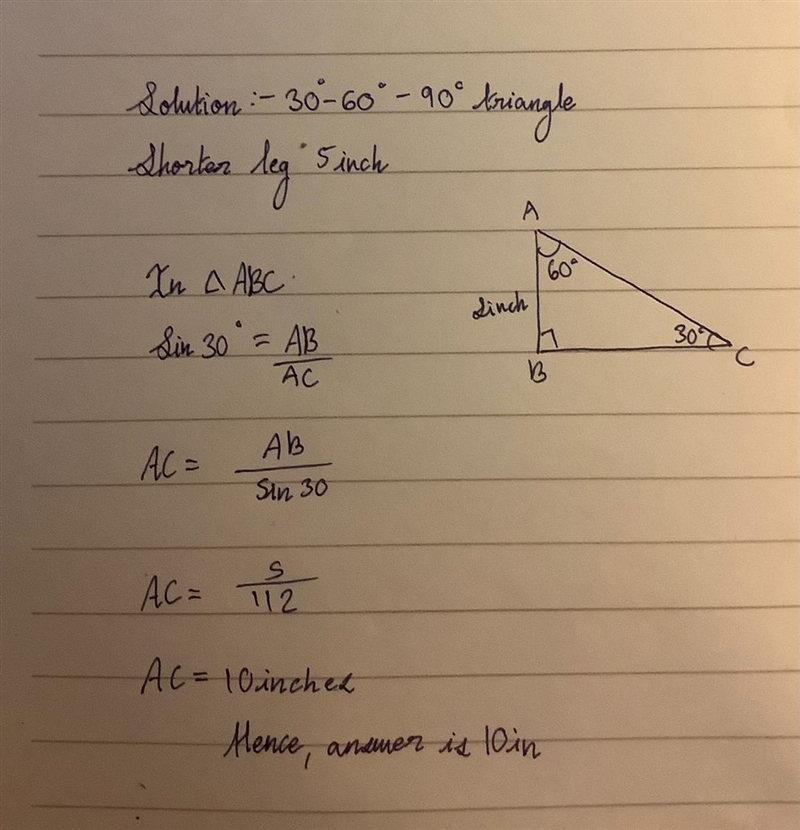 Solution :- 30°-60°-90° triangle
Shorter leg 5inch
A
60°
In △ ABC.
Sin 30° = AB
AC
inch
30°
B
C
AC = AB
Sin 30
AC = 5
1/2
AC = 10inches
Hence, answer is 10in